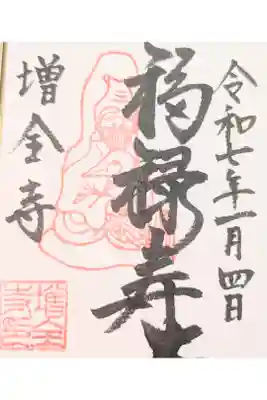 令和七年一月四日
福禄寿
増全寺